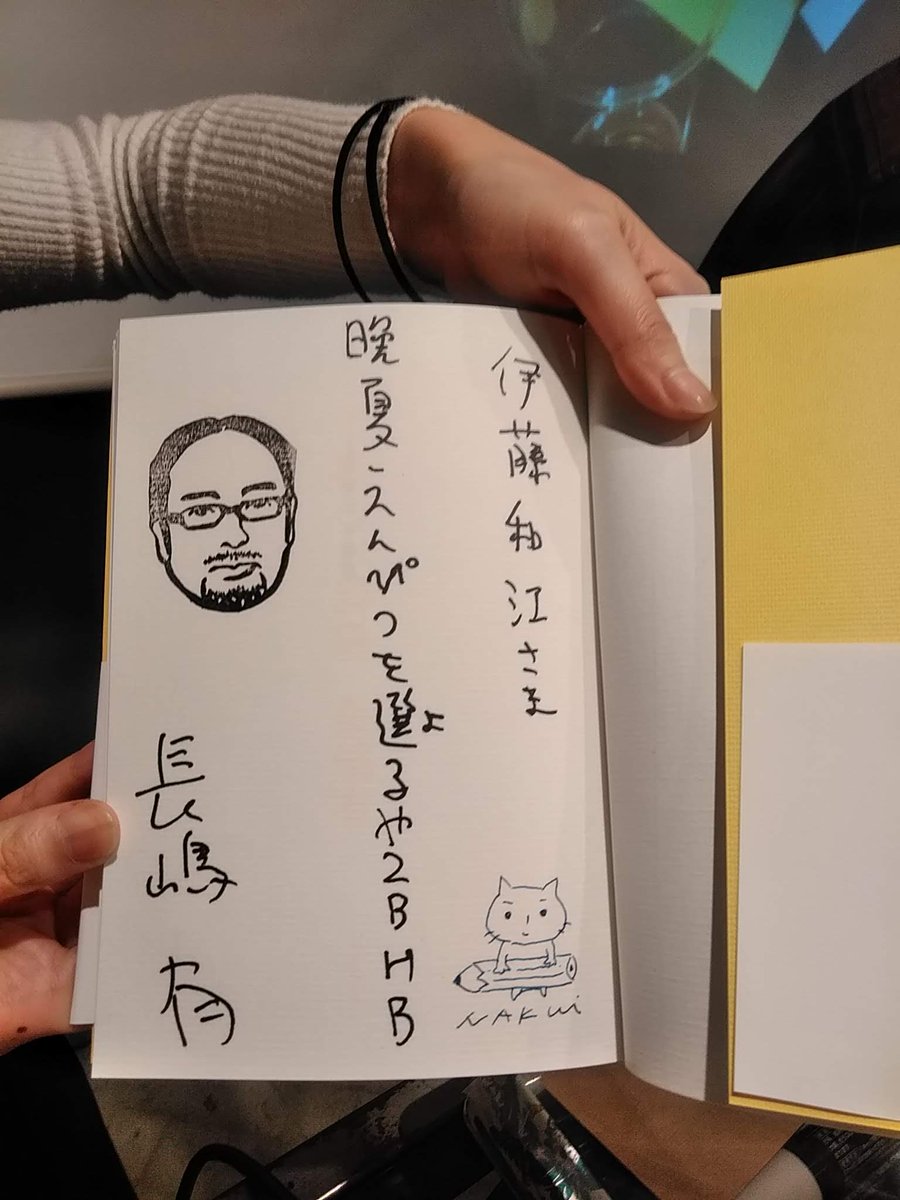 伊藤釉江さま
晩夏えんぴつを選るや2BHB
よ
長嶋有
NAKUi